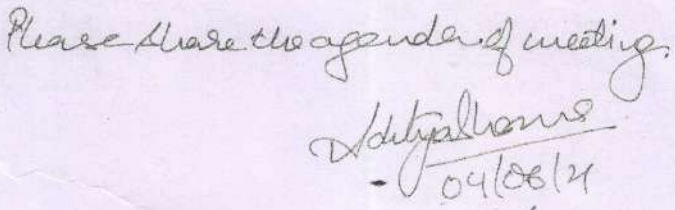 Please share the agenda of meeting.
Aditya Sharma
04/08/21